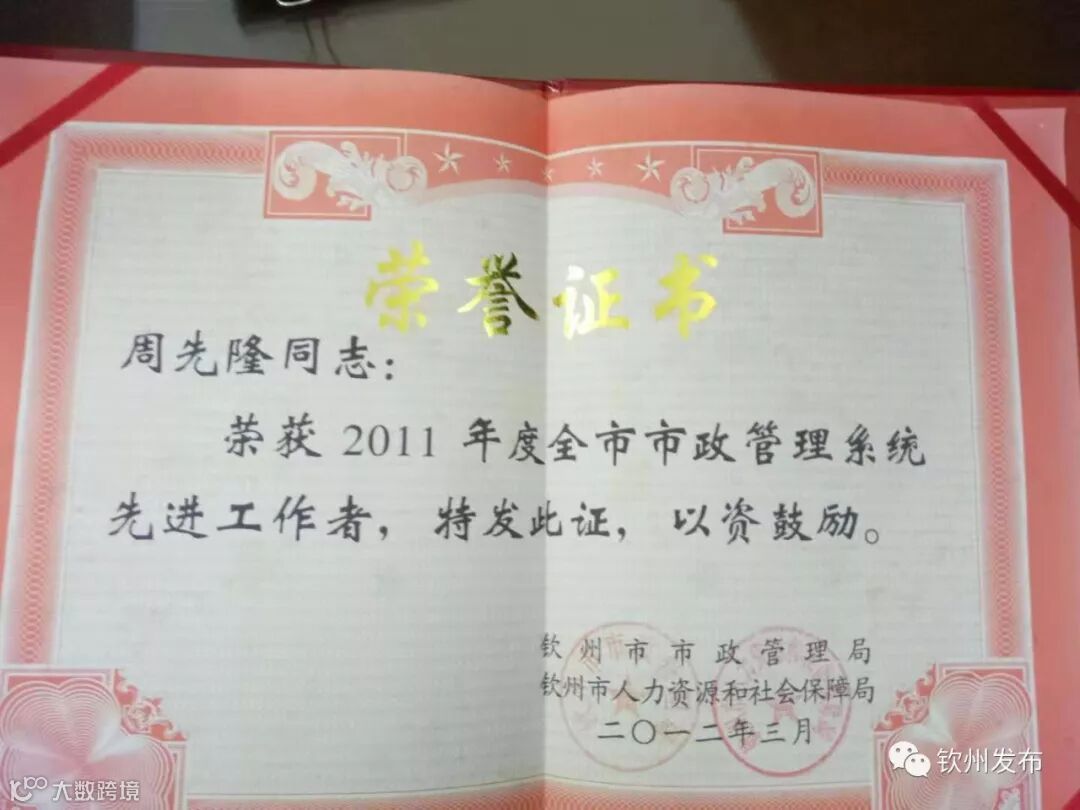 荣誉证书
周先隆同志：
荣获 2011 年度全市市政管理系统
先进工作者，特发此证，以资鼓励。
钦州市市政管理局
钦州市人力资源和社会保障局
二〇一二年三月
钦州发布
大数跨境